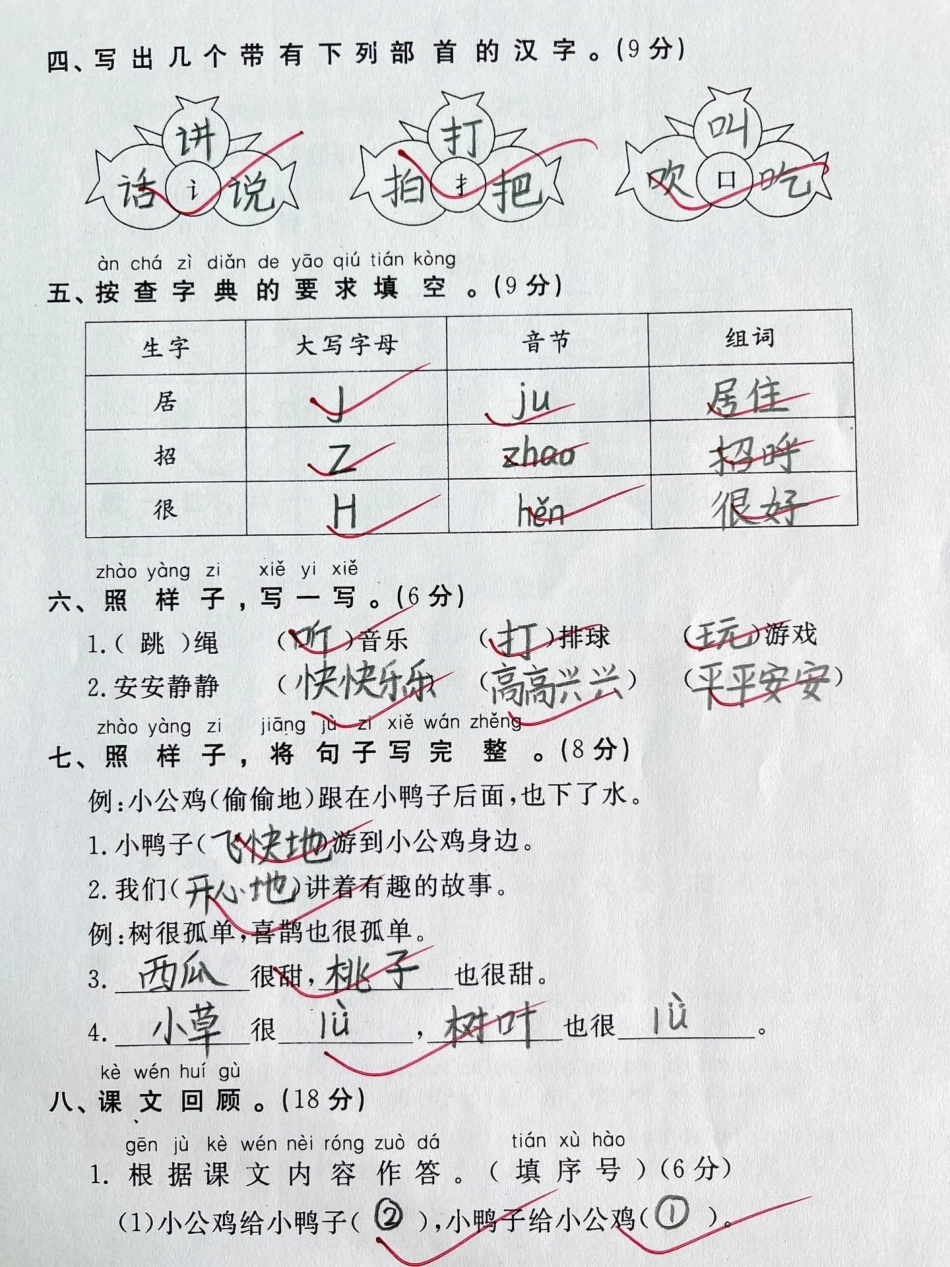 四、写出几个带有下列部首的汉字。(9分)
讲 打 叫
话 讠 说 拍 扌 把 吹 口 吃
àn chá zì diǎn de yāo qiú tián kòng
五、按查字典的要求填空。(9分)
生字 大写字母 音节 组词
居 J ju 居住
招 Z zhao 招呼
很 H hěn 很好
zhào yàng zi xiě yi xiě
六、照样子,写一写。(6分)
1.(跳)绳 (听)音乐 (打)排球 (玩)游戏
2.安安静静 (快快乐乐) (高高兴兴) (平平安安)
zhào yàng zi jiāng jù zi xiě wán zhěng
七、照样子,将句子写完整。(8分)
例:小公鸡(偷偷地)跟在小鸭子后面,也下了水。
1.小鸭子(飞快地)游到小公鸡身边。
2.我们(开心地)讲着有趣的故事。
例:树很孤单,喜鹊也很孤单。
3.西瓜很甜,桃子也很甜。
4.小草很lǜ,树叶也很lǜ。
kè wén huí gù
八、课文回顾。(18分)
gēn jù kè wén nèi róng zuò dá tián xù hào
1.根据课文内容作答。(填序号)(6分)
(1)小公鸡给小鸭子(②),小鸭子给小公鸡(①)。